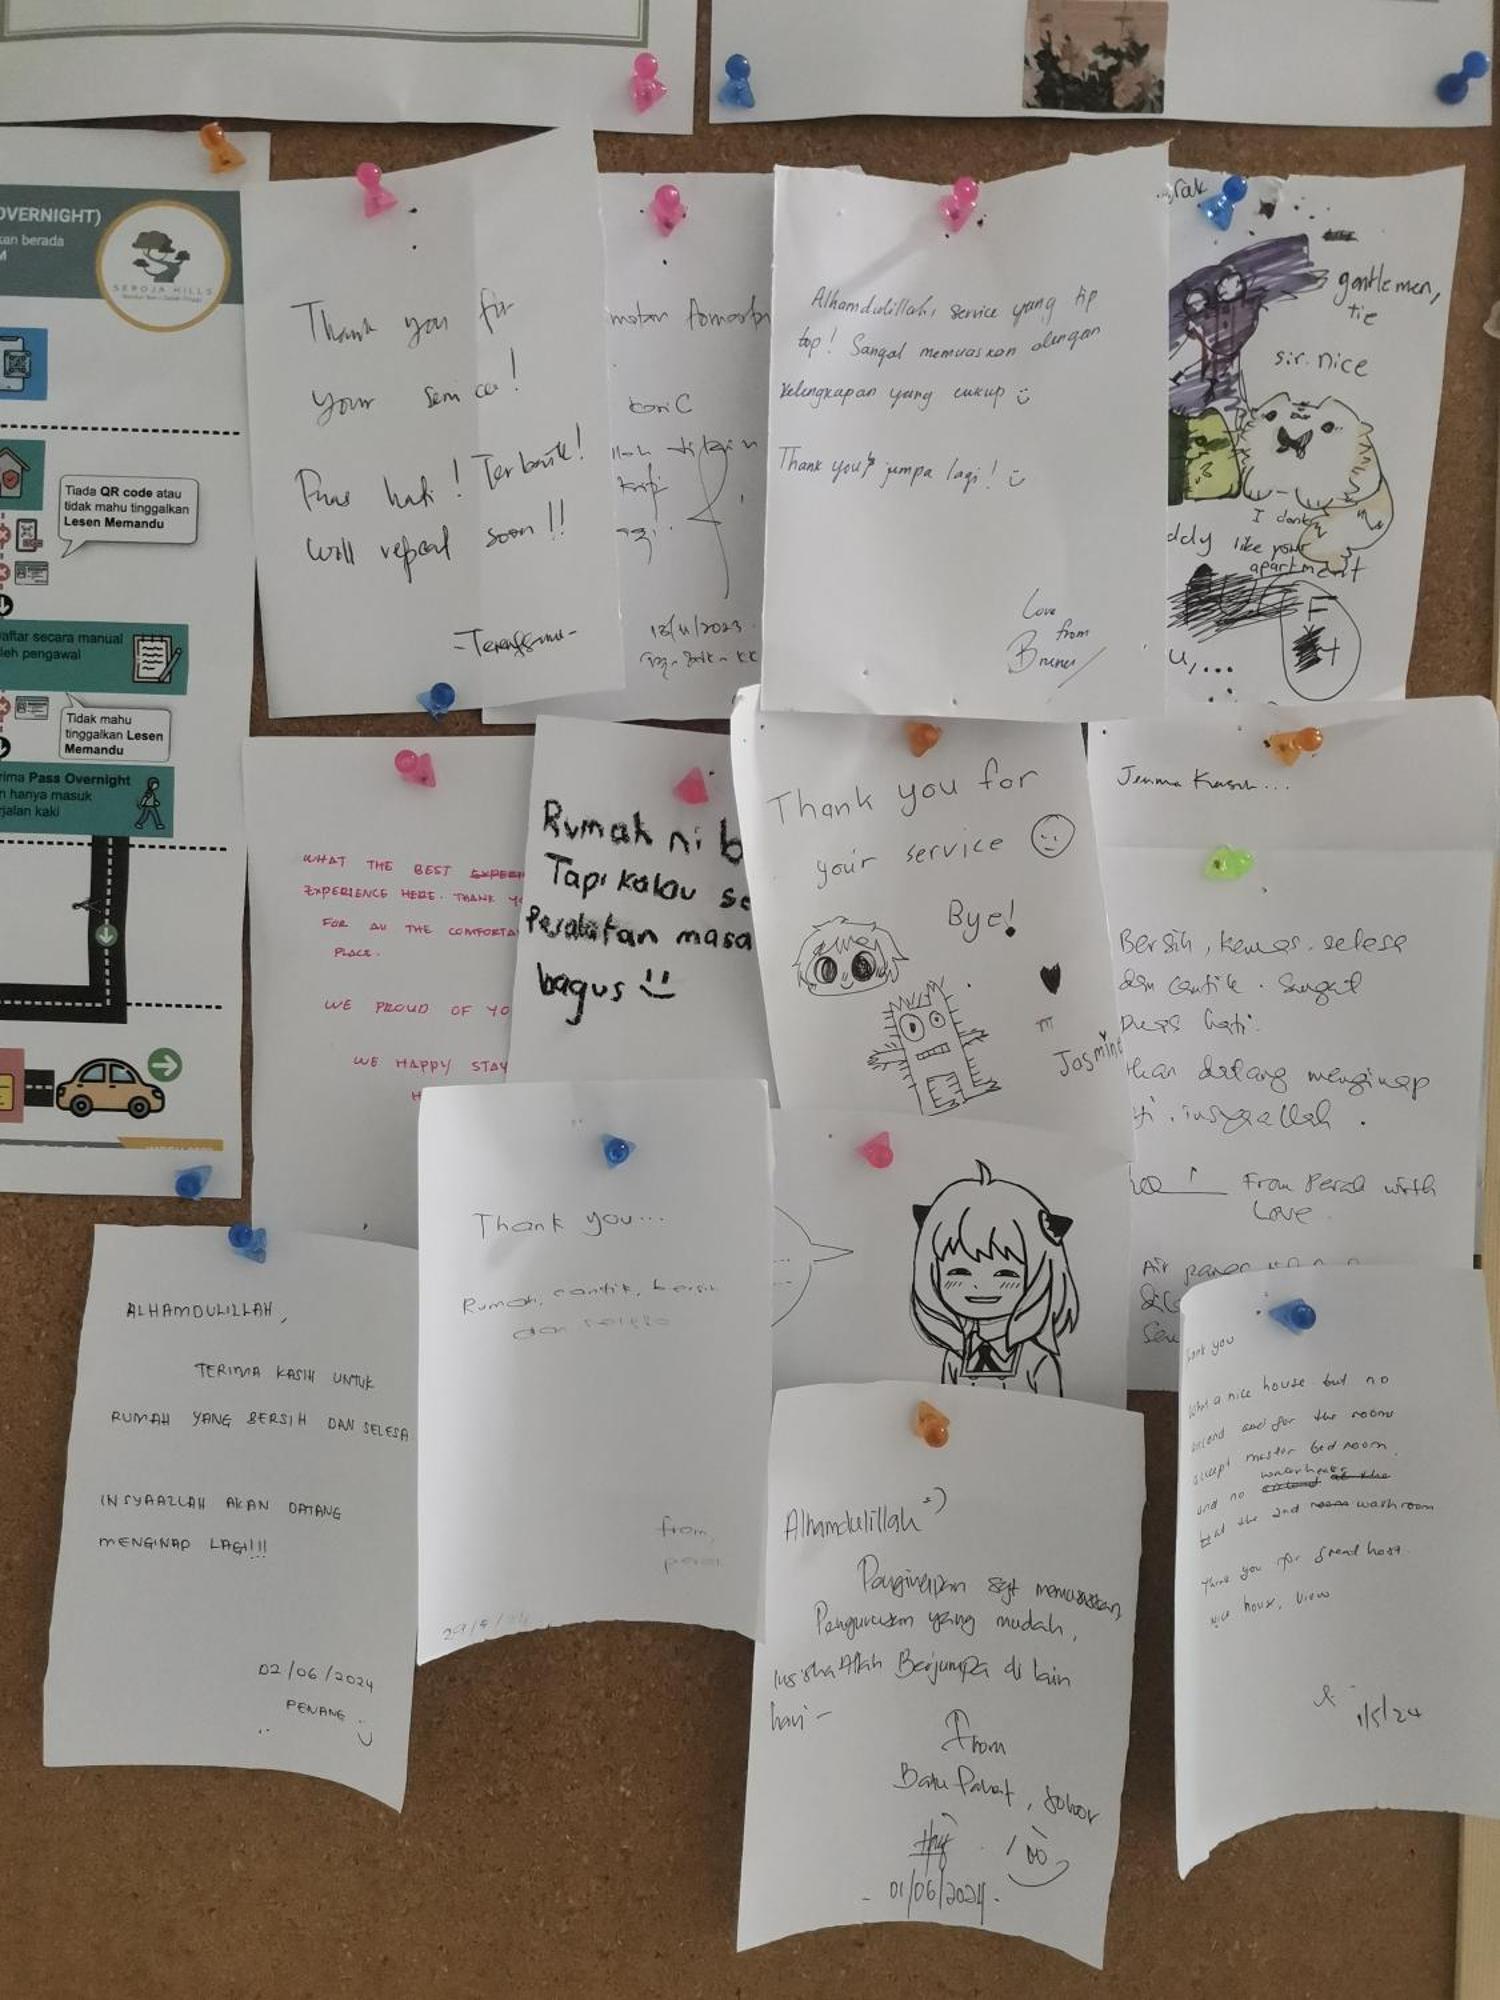 OVERNIGHT)
kan berada
M
SEROJA HILLS
Tiada QR code atau
tidak mahu tinggalkan
Lesen Memandu
aftar secara manual
leh pengawal
Tidak mahu
tinggalkan Lesen
Memandu
rima Pass Overnight
n hanya masuk
rjalan kaki
Thank you for
your service!
Puas hati! Terbaik!
Will repeat soon!!
-Terengganu-
kari C
13/11/2023
Alhamdulillah, service yang tip
top! Sangat memuaskan dengan
kelengkapan yang cukup
Thank you & jumpa lagi!
Love
from
Brunei
gentlemen,
tie
sir. nice
I dont
ddy like your
apartment
u,...
WHAT THE BEST
EXPERIENCE HERE. THANK YO
FOR ALL THE COMFORTA
PLACE.
WE PROUD OF YO
WE HAPPY STAY
H
Rumah ni b
Tapi kalau se
Peralatan masa
bagus
Thank you for
your service
Bye!
Jasmine
Terima Kasih...
Bersih, kemas, selesa
dan cantik. Sangat
puas hati.
kan datang menginap
ti. insyaallah.
From Perak with
Love
Air panas
Thank you...
Rumah, cantik, bersih
dan selesa
from,
perak
29/5/24
ALHAMDULILLAH,
TERIMA KASIH UNTUK
RUMAH YANG BERSIH DAN SELESA
INSYAALLAH AKAN DATANG
MENGINAP LAGI!!!
02/06/2024
PENANG
Alhamdulillah
Penginapan sgt memuaskan,
Pengurusan yang mudah,
InsishaAllah Berjumpa di lain
hari-
From
Batu Pahat, Johor
- 01/06/2024 -
ank you
What a nice house but no
and for the rooms
except master bedroom.
and no waterheater
at the 2nd washroom
Thank you for great host.
Nice house, view
1/5/24